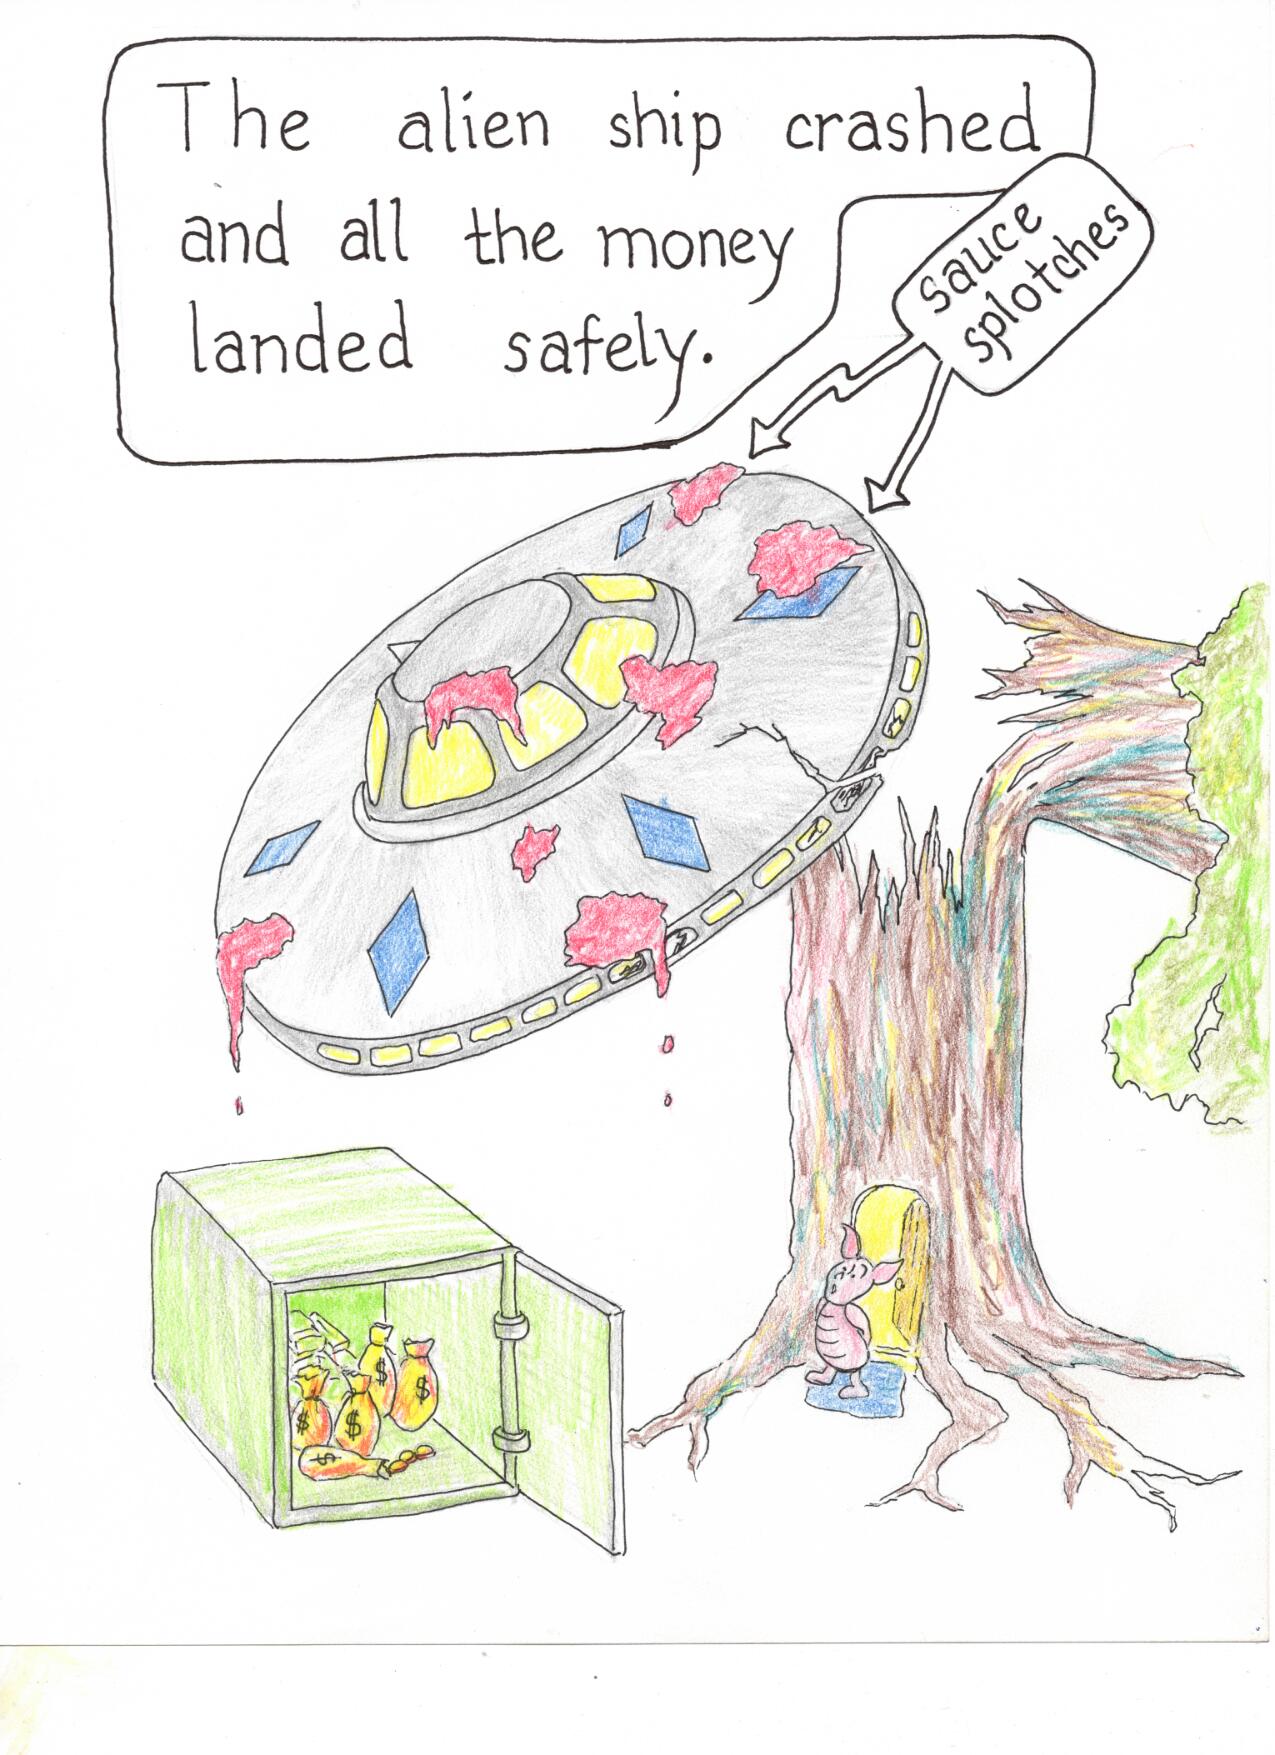 The alien ship crashed
and all the money
landed safely.
sauce
splotches
$
$
$
$
$